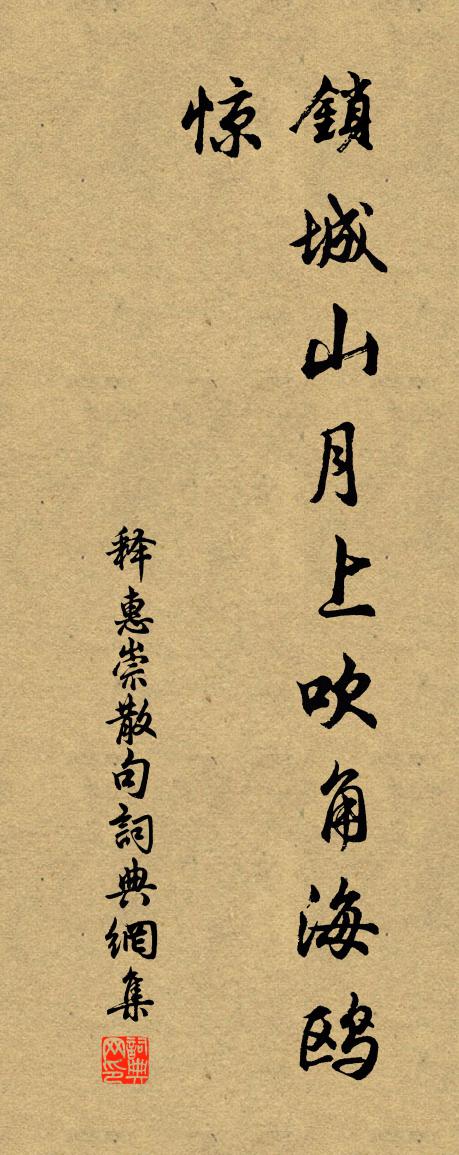 鎖城山月上吹角海鸥
惊
释惠崇散句詞典網集
詞典
网印